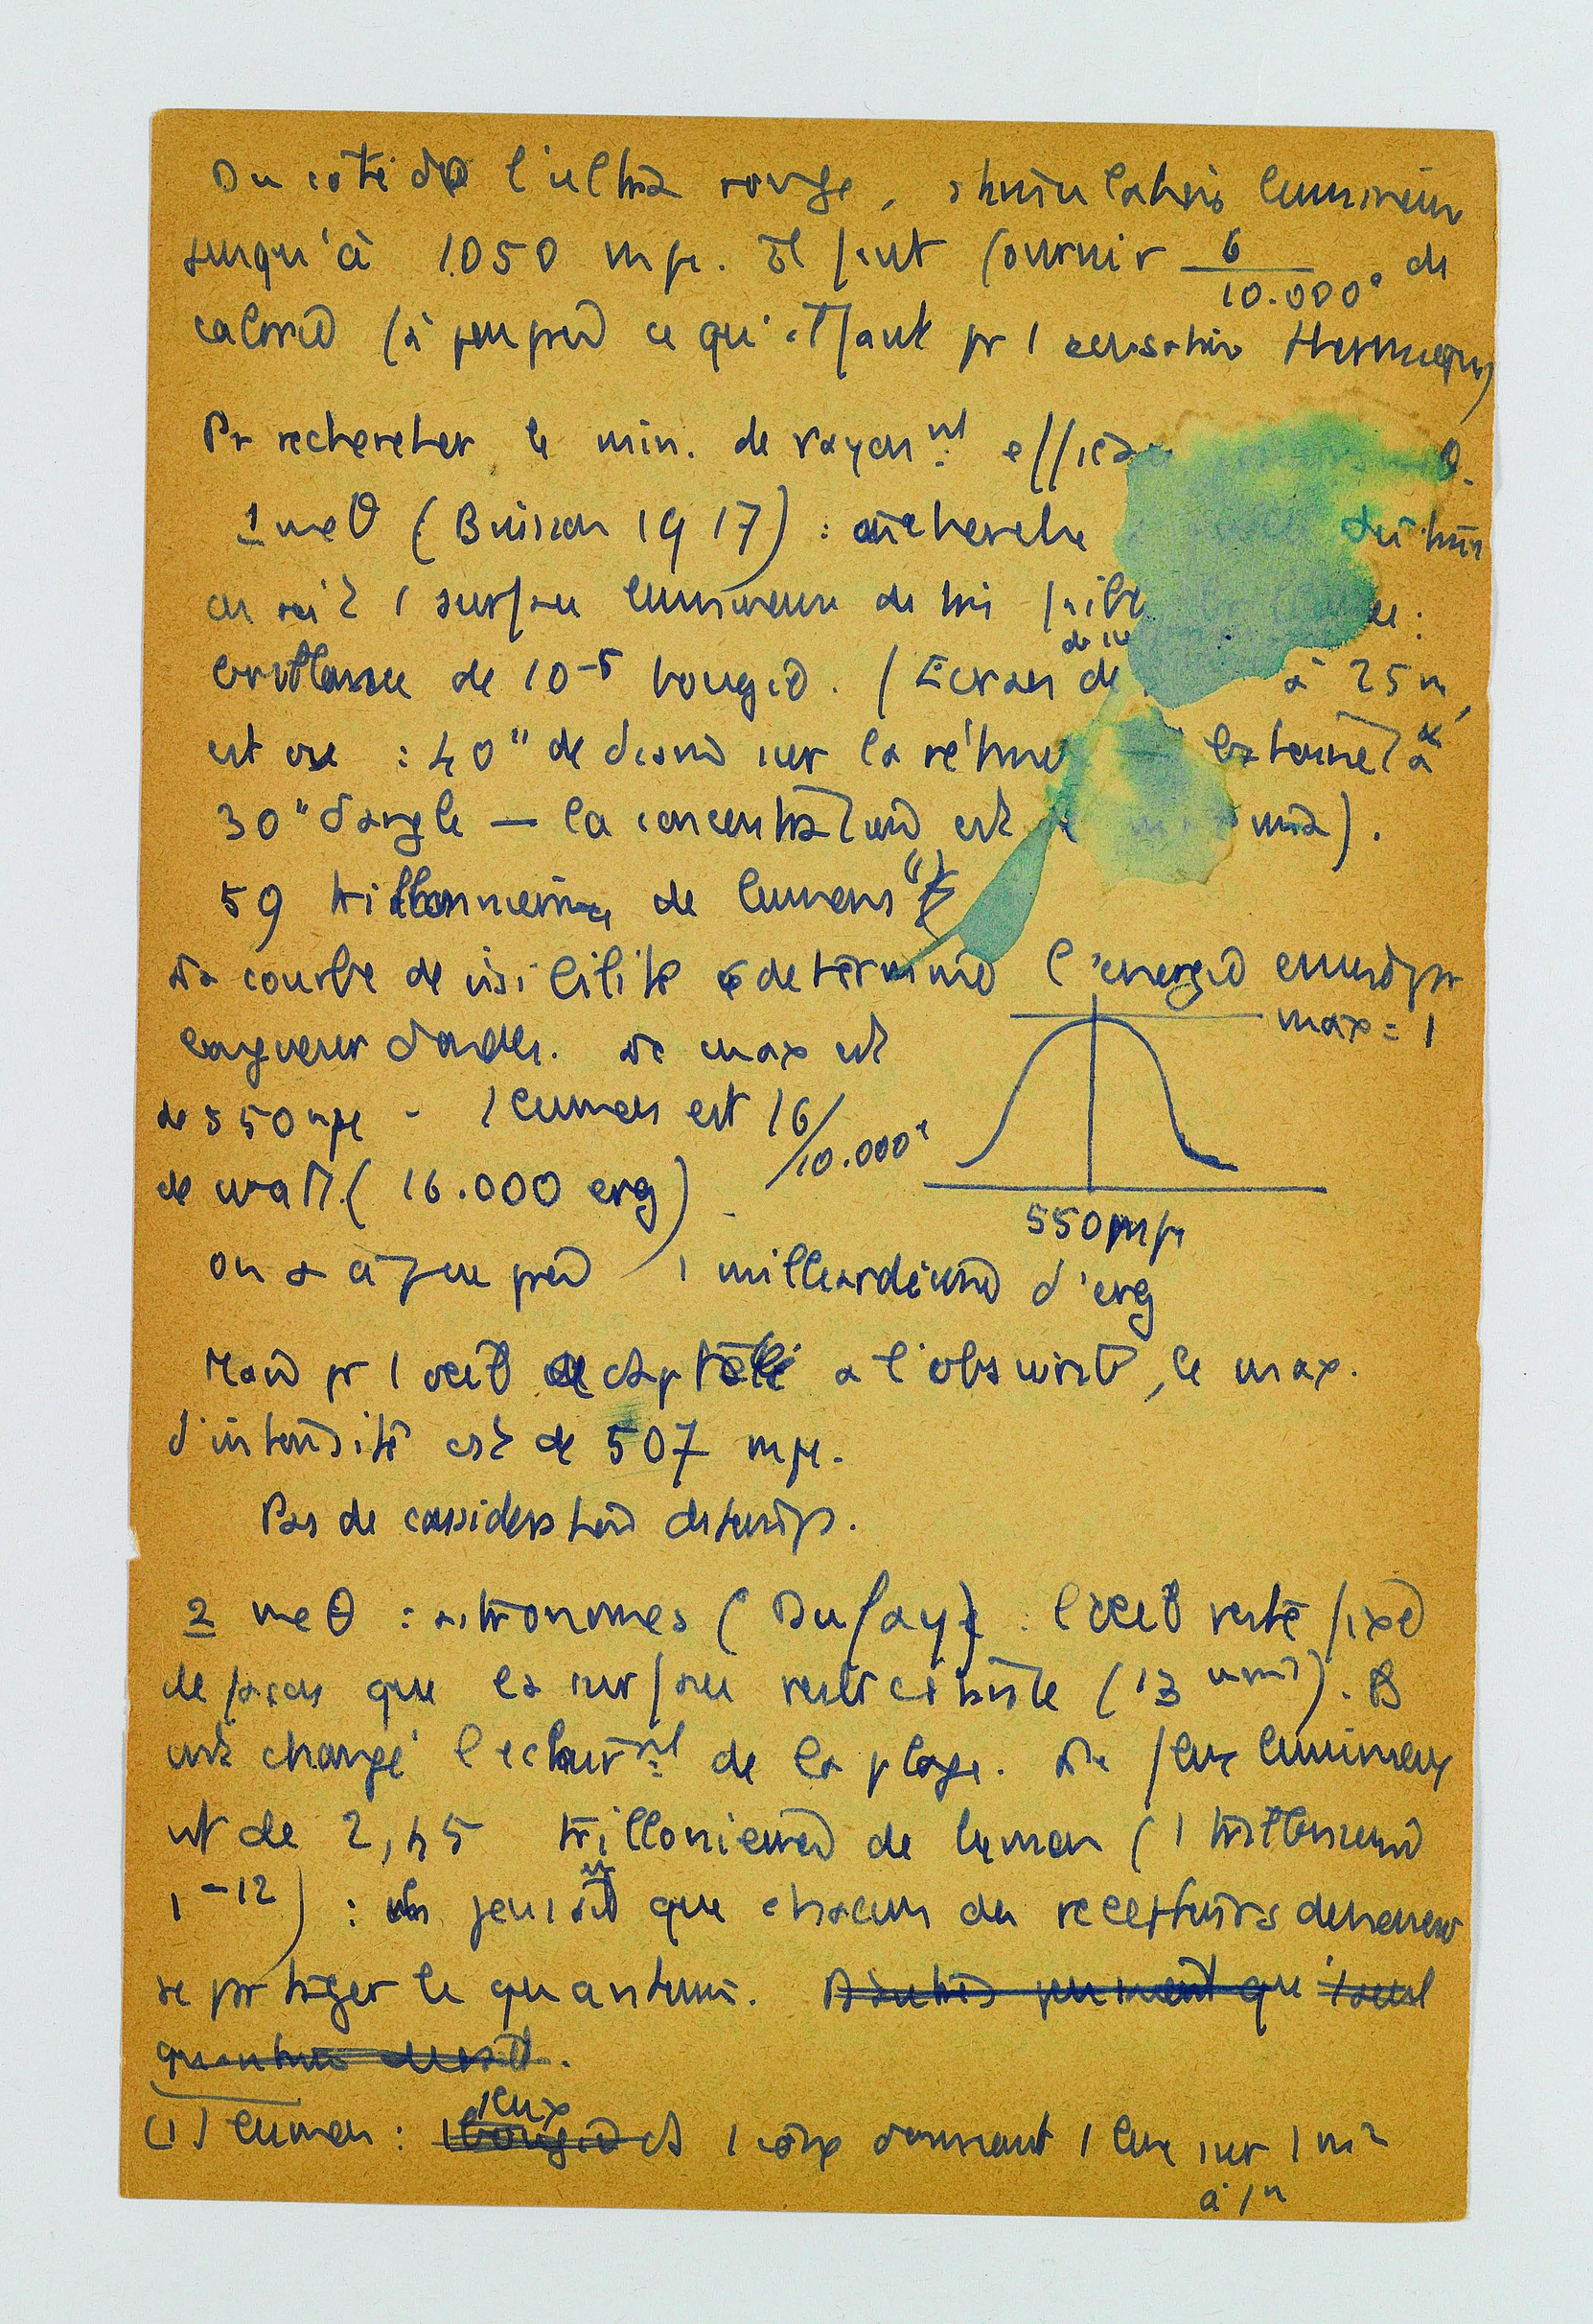 Du côté de l'ultra rouge, stimulation lumineuse
jusqu'à 1.050 mμ. Il faut fournir 6/10.000° de
calorie (à peu près ce qu'il faut pr 1 sensation thermique)
Pr rechercher le min. de rayonnt
1 meθ (Buisson 1917) : on cherche
on voit 1 surface lumineuse de très faible
brillance de 10-5 bougie. (Écran de à 25 m,
est vue : 40" de sur la rétine
30" d'angle — la est
59 trillonnièmes de lumens (1)
La courbe de visibilité détermine l'énergie
longueur d'ondes. Le max est
max = 1
de 550 mμ - 1 lumen est 16/10.000e
de watt. (16.000 erg)
550 mμ
on a à peu près 1 milliardième d'erg
Mais pr 1 œil adapté à l'obscurité, le max.
d'intensité est de 507 mμ.
Pas de considération de temps.
2 meθ : astronomes (Dufay) : l'œil reste fixe
de façon que la surface reste (13 ).
est changé l'éclairnt de la plage. Le flux lumineux
est de 2,45 trillonièmes de lumen (1 trillonième
1-12) : que chacun des récepteurs
se partager le quantum. D'autres pensent qu'1 seul
quantum
(1) lumen : 1 lux 1 bougie 1 donnant 1 lux sur 1 m2
à 1m